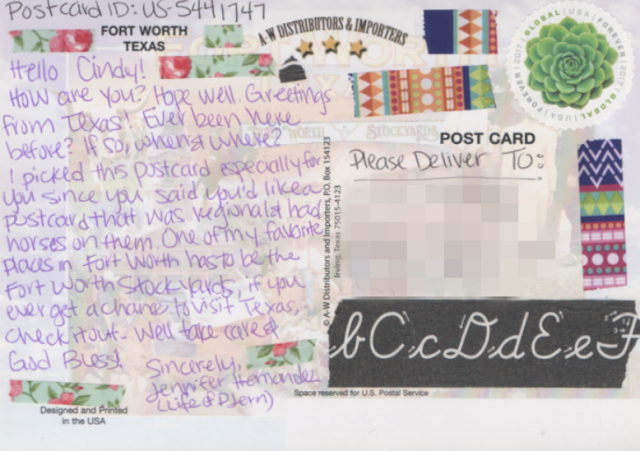 Postcard ID: US-5441747
FORT WORTH
TEXAS
A-W DISTRIBUTORS & IMPORTERS
GLOBAL | USA | FOREVER | 2017
Hello Cindy!
How are you? Hope well. Greetings
from Texas! Ever been here
before? If so, when & where?
I picked this postcard especially for
you since you said you'd like a
postcard that was regional & had
horses on them. One of my favorite
places in Fort Worth has to be the
Fort Worth Stockyards, if you
ever get a chance to visit Texas,
check it out. Well take care &
God Bless!
Sincerely,
Jennifer Hernandez
(Life of DJern)
Designed and Printed
in the USA
© A-W Distributors and Importers, P.O. Box 154123
Irving, Texas 75015-4123
POST CARD
Please Deliver To:
bCcDdEeF
Space reserved for U.S. Postal Service